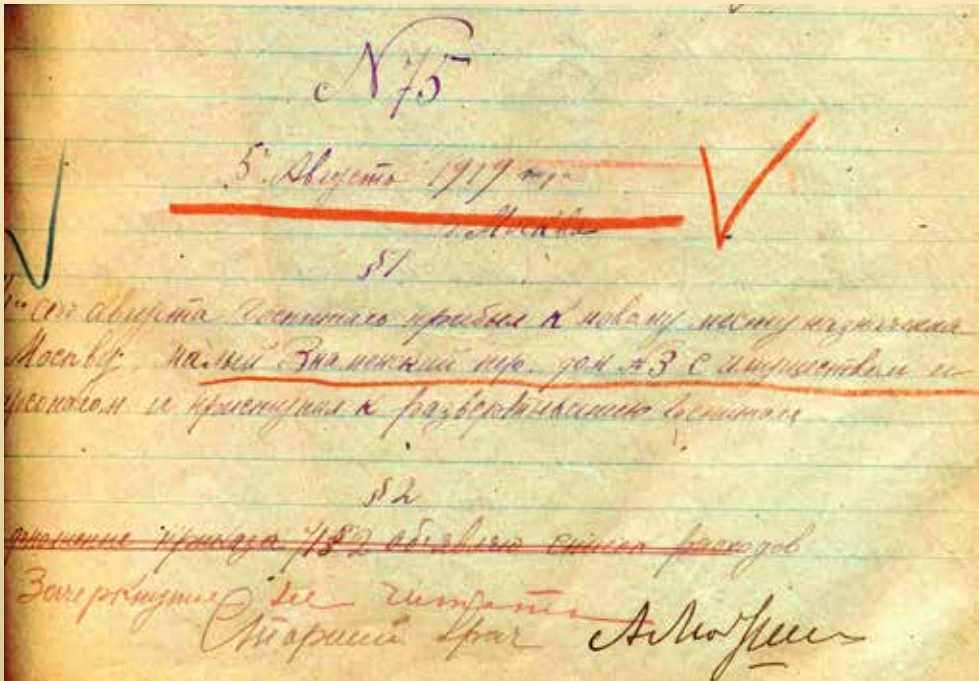 N 75
5 Августа 1919 года
г. Москва
§1
сего августа Госпиталь прибыл к новому месту назначения
Москву Малый Знаменский пер. дом №3 с имуществом и
персоналом и приступил к развертыванию госпиталя
§2
приказа §2 объявляю список расходов
Зачеркнутое не читать
Старший врач